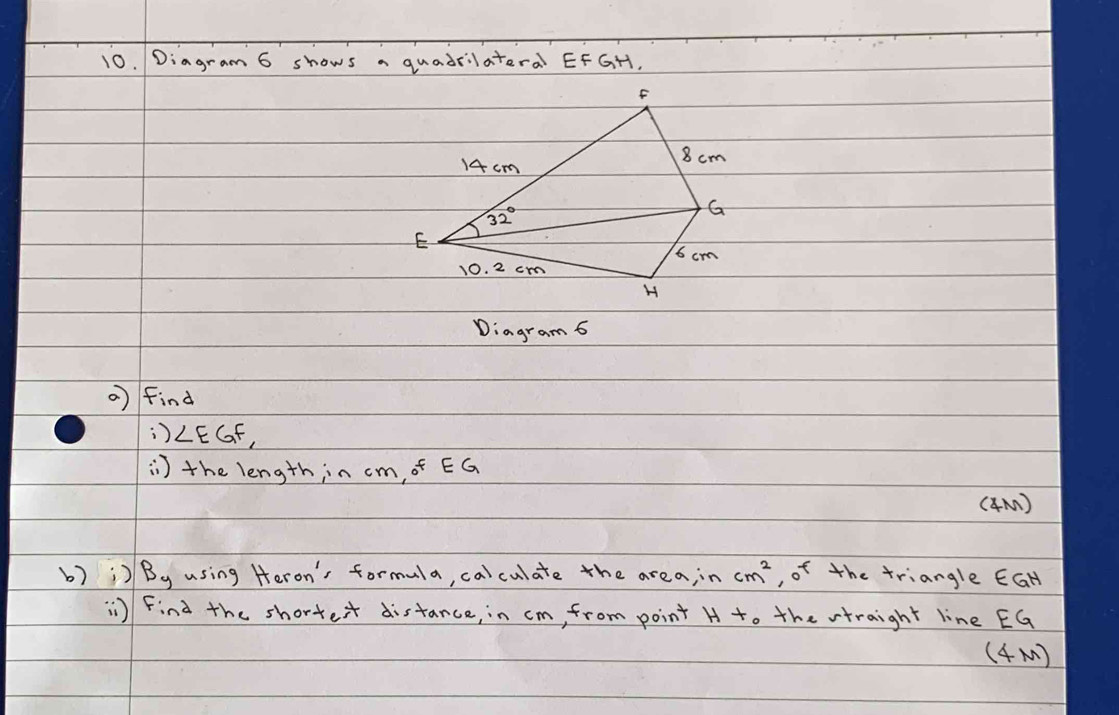 10. Diagram 6 shows a quadrilateral EFGH.
F
14 cm
8 cm
32°
G
E
6 cm
10.2 cm
H
Diagram 6
a) Find
i) ∠EGF,
ii) the length, in cm, of EG
(4M)
b) i) By using Heron's formula, calculate the area, in cm², of the triangle EGH
ii) Find the shortest distance, in cm, from point H to the straight line EG
(4M)